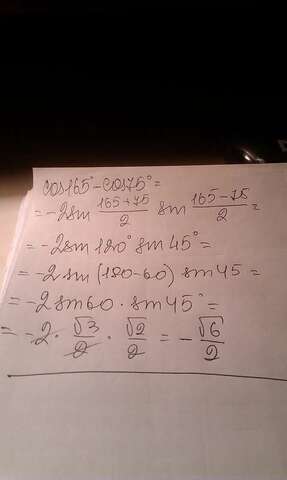 cos165° - cos75° =
= -2sin (165+75)/2 sin (165-75)/2 =
= -2sin120° sin45° =
= -2 sin (180-60) sin45 =
= -2 sin60 · sin45° =
= -2 · √3/2 · √2/2 = - √6/2